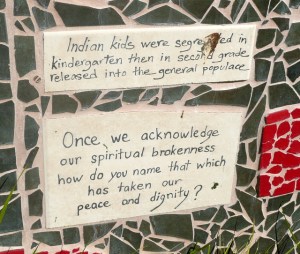 Indian kids were segregated in
kindergarten then in second grade
released into the general populace
Once, we acknowledge
our spiritual brokenness
how do you name that which
has taken our
peace and dignity?